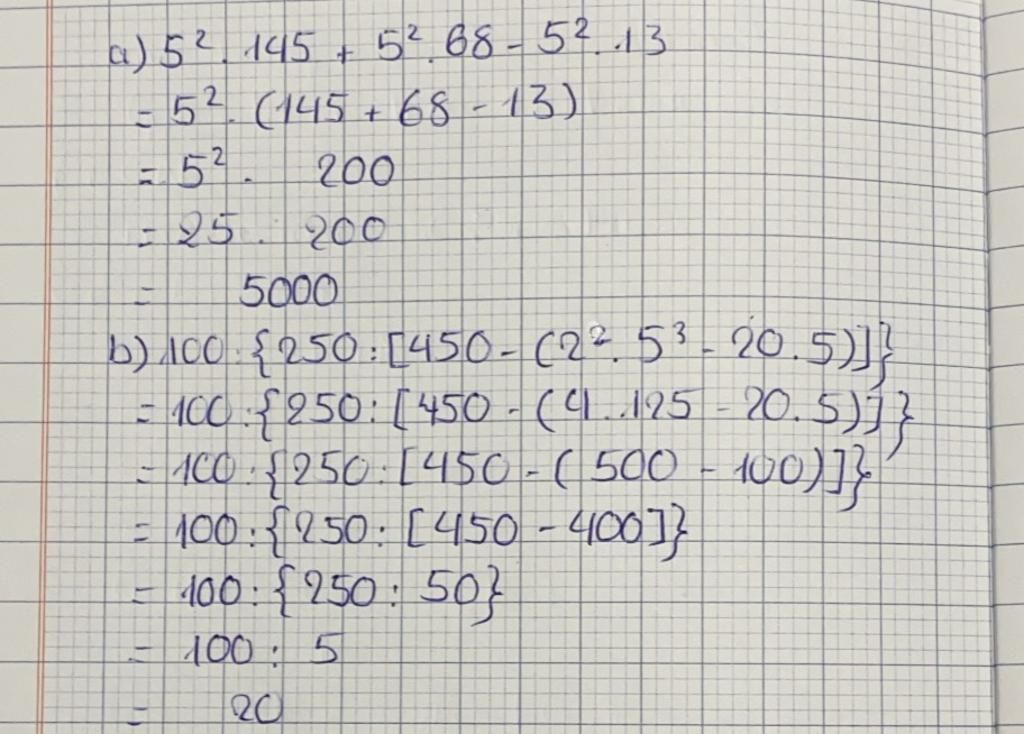 a) 5². 145 + 5². 68 - 5². 13
= 5². (145 + 68 - 13)
= 5². 200
= 25. 200
= 5000
b) 100:{250:[450-(2². 5³ - 20.5)]}
= 100:{250:[450-(4..125 - 20.5)]}
= 100:{250:[450-(500 - 100)]}
= 100:{250:[450-400]}
= 100:{250:50}
= 100:5
= 20